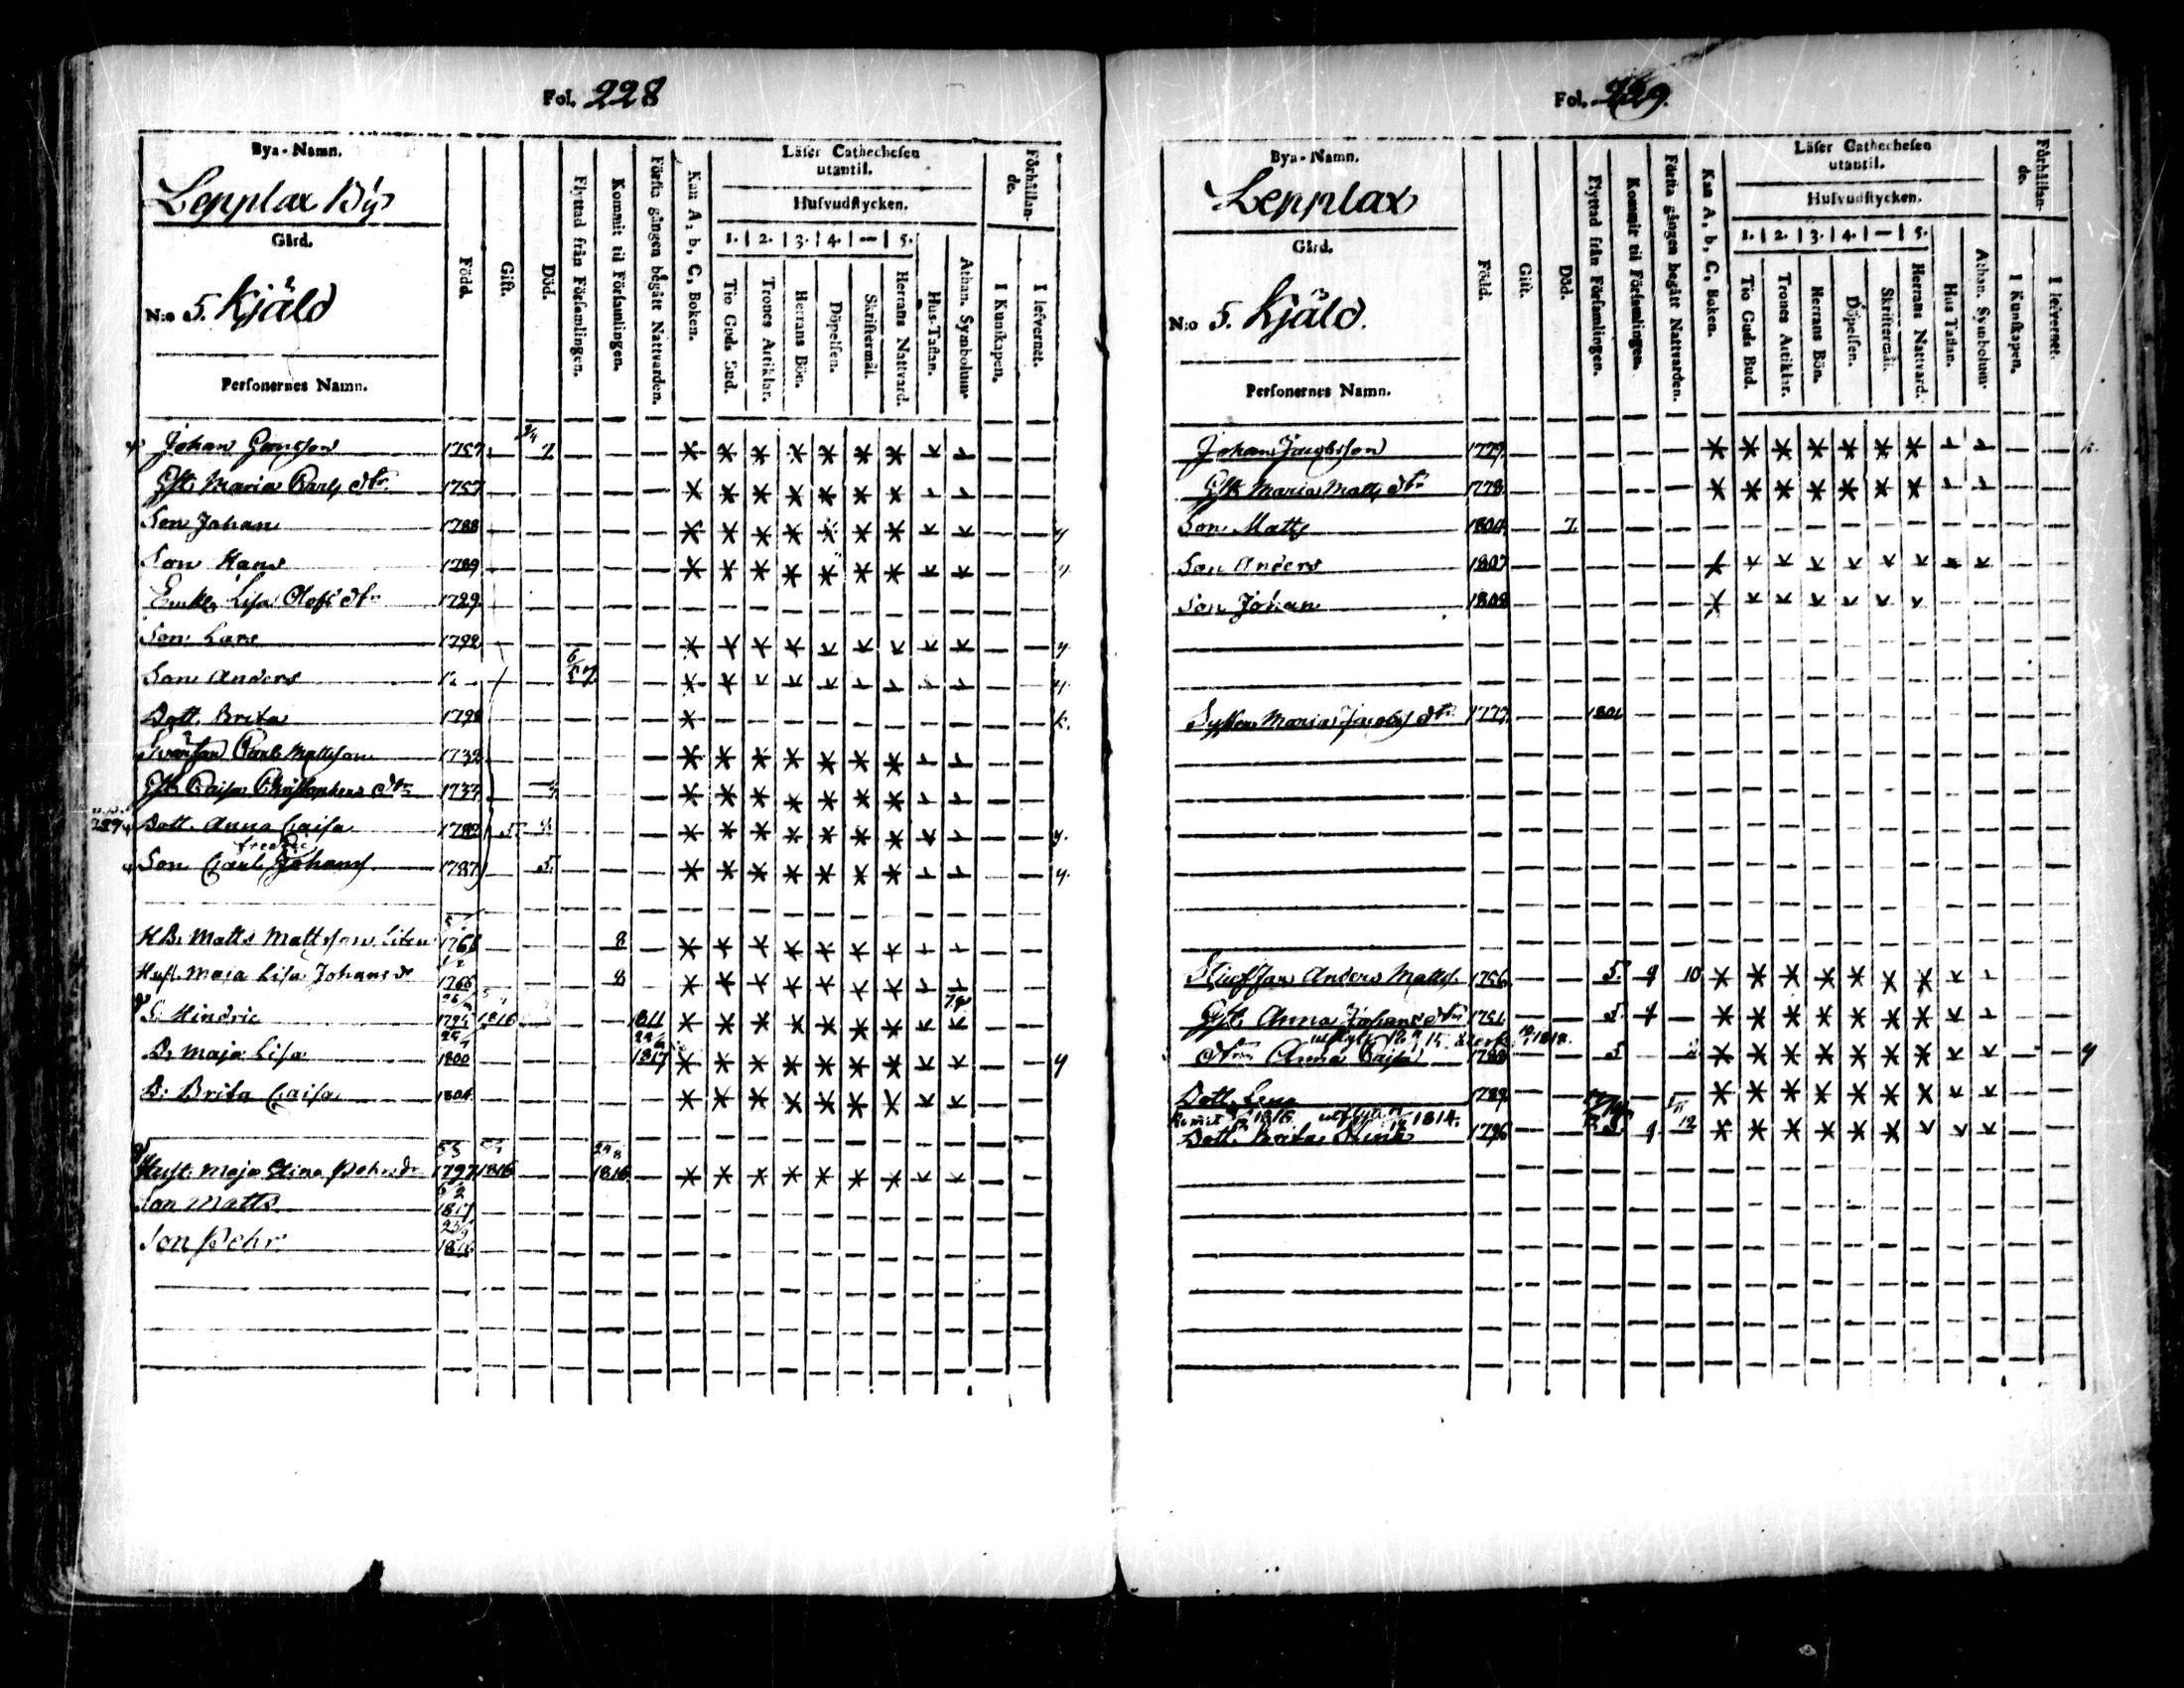 Fol. 228
Bya-Namn.
Lepplax By
Gård.
N:o 5. Kjäld
Personernes Namn.
Född.
Gift.
Död.
Flyttad från Församlingen.
Kommit til Församlingen.
Första gången begått Nattvarden.
Kan A, b, C, Boken.
Läser Cathechesen utantil.
Hufvudstycken.
1. 2. 3. 4. — 5.
Tio Guds Bud.
Trones Artiklar.
Herrans Bön.
Döpelsen.
Skriftermål.
Herrans Nattvard.
Hus-Taflan.
Athan. Symbolum.
Förhållande.
I Kunskapen.
I lefvernet.
Johan 1757 7
Gst. Maria Carls dtr 1757
Son Johan 1788 y
Son Hans 1789 y
Enkl. Lisa Olofs dtr 1729
Son Lars 1792 y
Son Anders y
Dott. Brita 1798 k.
Carl Mattsson 1732
Gst. Caisa Christophers dtr 1737
Dott. Anna Caisa 1782 5 y.
Son Carl Johan fredric 1787 5. y.
HB. Matts Mattsson Liten 1768 8
Hust. Maja Lisa Johans dr 1766 8
S. Hindric 1795 1816 1811
D. Maja Lisa 1800 1817 y
D: Brita Caisa 1804
Hust. Maja Stina Pehrs dr 1797 1816 1816
Son Matts 1817
Son Pehr
Fol. 229.
Bya-Namn.
Lepplax
Gård.
N:o 5. Kjäld.
Personernes Namn.
Född.
Gift.
Död.
Flyttad från Församlingen.
Kommit til Församlingen.
Första gången begått Nattvarden.
Kan A, b, C, Boken.
Läser Cathechesen utantil.
Hufvudstycken.
1. 2. 3. 4. — 5.
Tio Guds Bud.
Trones Artiklar.
Herrans Bön.
Döpelsen.
Skriftermål.
Herrans Nattvard.
Hus Taflan.
Athan. Symbolum.
Förhållande.
I Kunskapen.
I lefvernet.
Johan Jacobsson 1779
Gst. Maria Matts dtr 1778
Son Matts 1804 7.
Son Anders 1807
Son Johan 1808
Syster Maria Jacobs dtr 1777
Anders Matts. 1756 5. 9 10
Gst. Anna Johans dtr 1751 5. 9
Dtr Anna Caisa 1788 5 y
Dott. Lena 1789
1816 utflytt 1814.
Dott. Brita Stina 1796 9 12